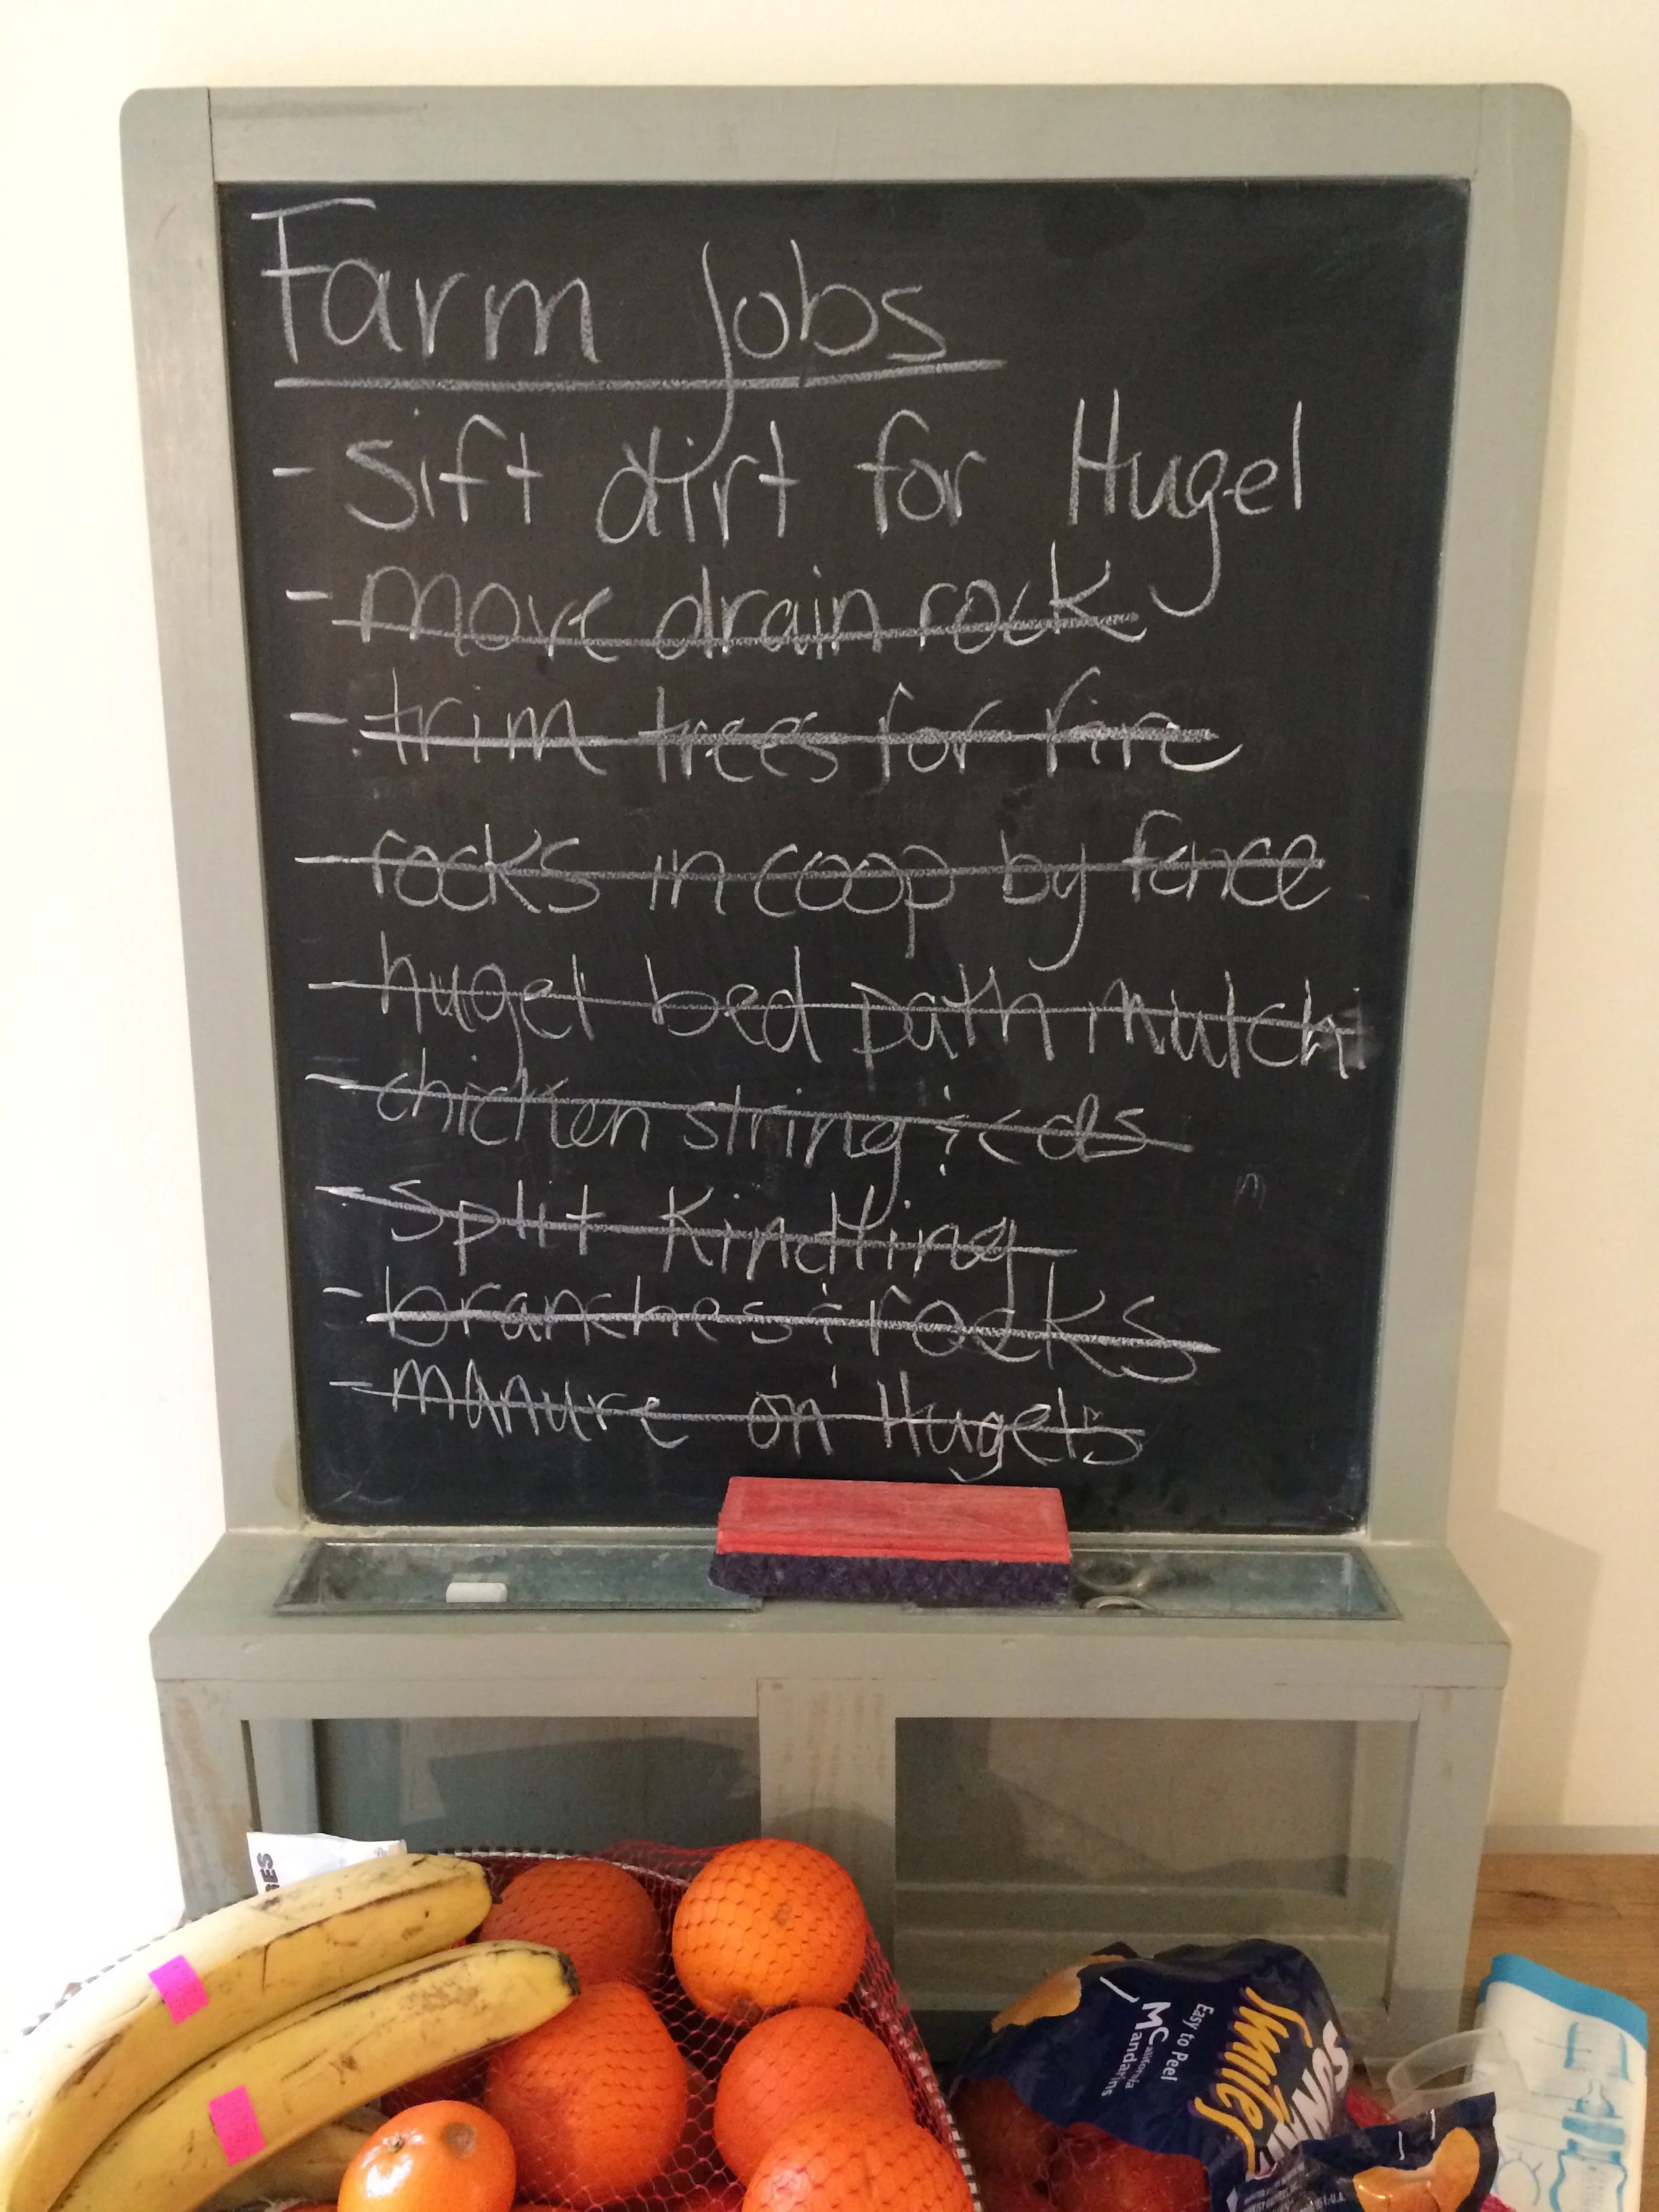 Farm jobs
- Sift dirt for Hugel
- move drain rock
- trim trees for fire
- rocks in coop by fence
- hugel bed path mulch
- chicken string & cds
- Split Kindling
- branches & rocks
- manure on Hugels
SUNNY
Smiles
Easy to Peel
California
Mandarins